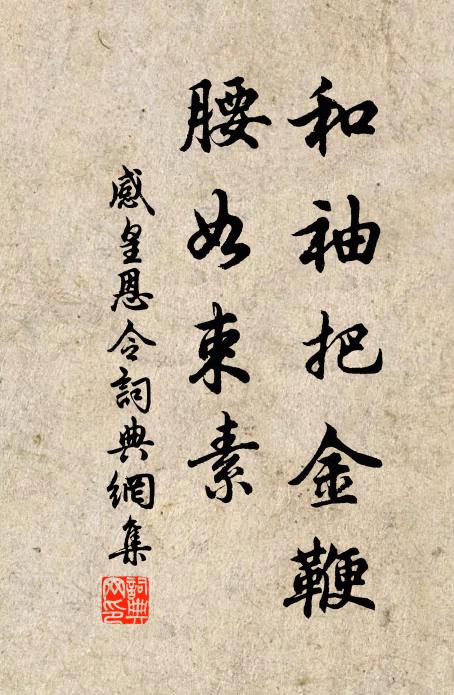 和袖把金鞭
腰如束素
感皇恩令詞典網集
詞典
網印